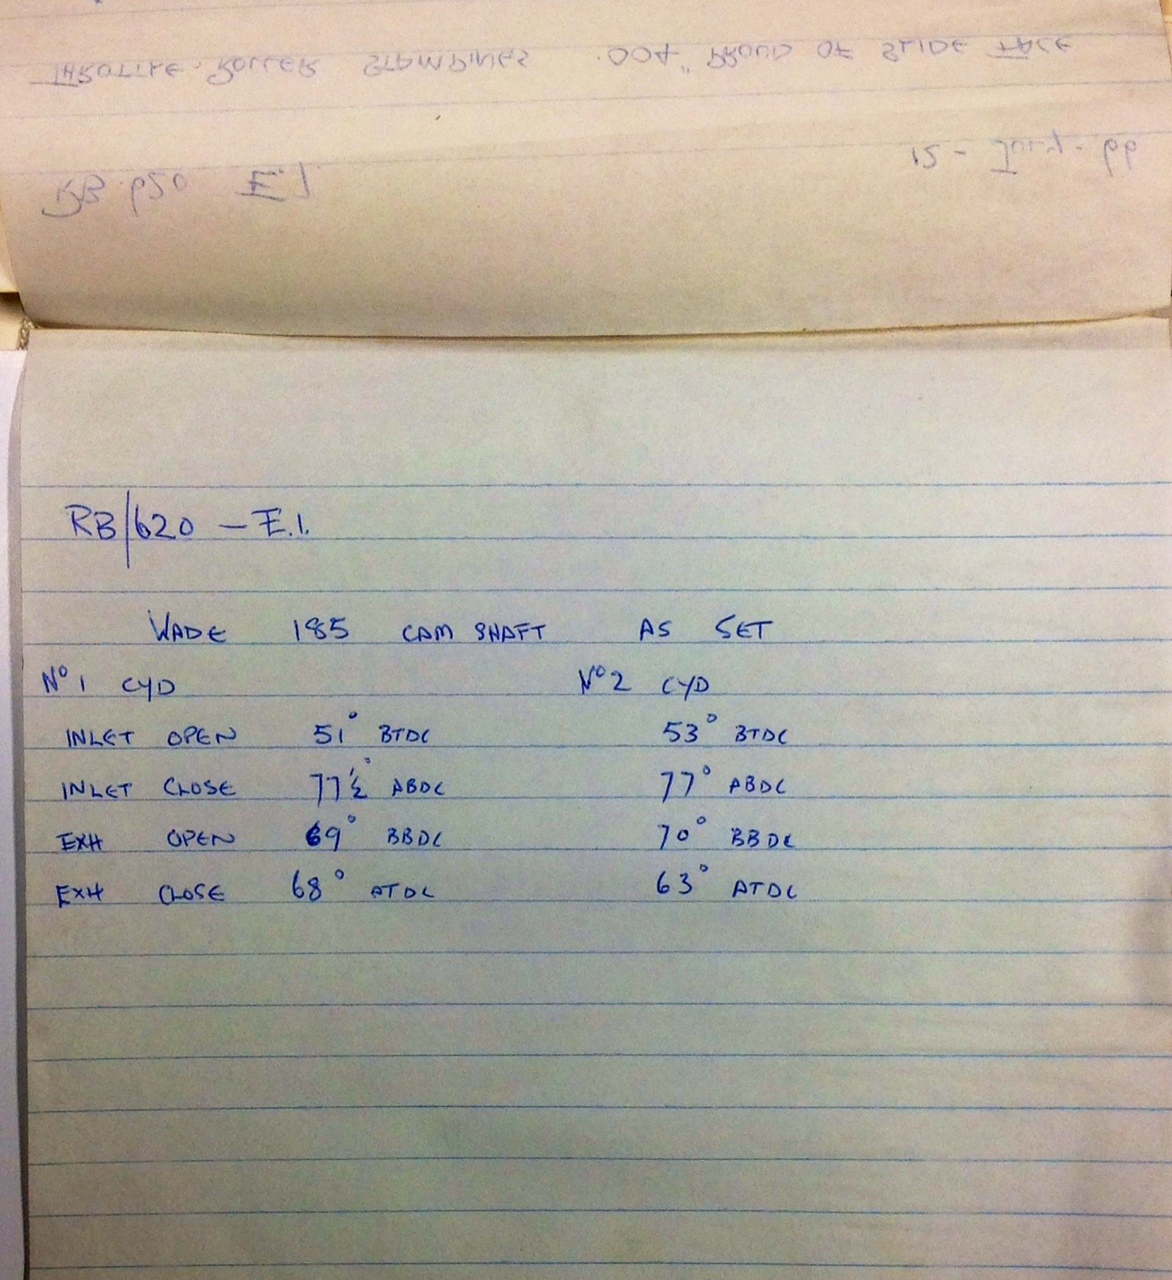 RB 620 E.1
12 - July - 66
THROTTLE ROLLER STAMPINGS .004" PROUD OF SLIDE FACE
RB/620 - E.1.
WADE 185 CAM SHAFT AS SET
Nº 1 CYD Nº 2 CYD
INLET OPEN 51° BTDC 53° BTDC
INLET CLOSE 77½° ABDC 77° ABDC
EXH OPEN 69° BBDC 70° BBDC
EXH CLOSE 68° ATDC 63° ATDC